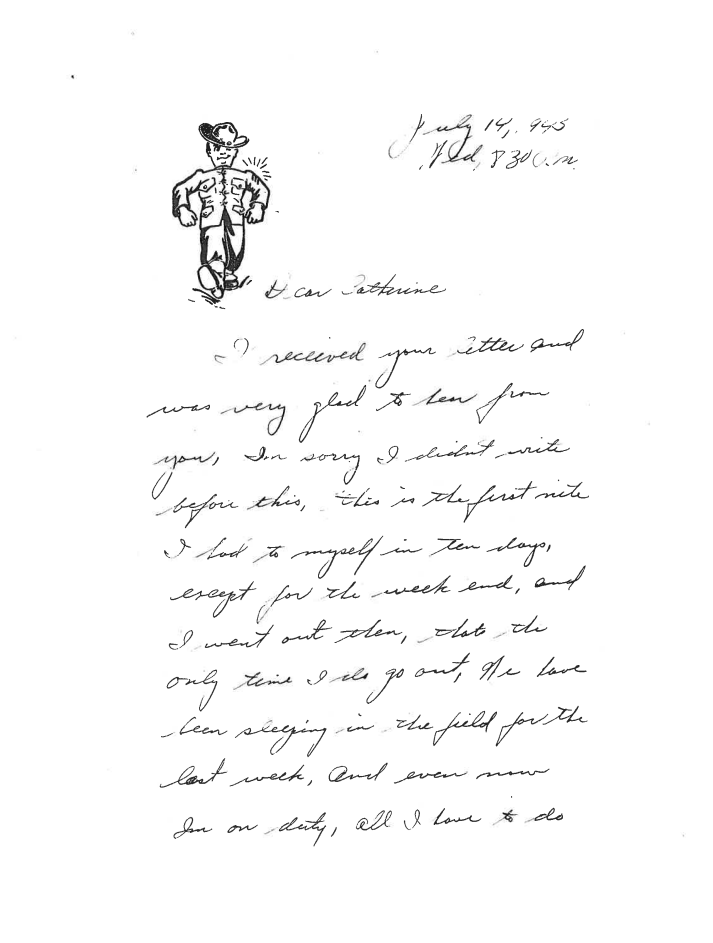 July 14, 945
Wed, 830 P.m.
Dear Catherine
I received your letter and
was very glad to hear from
you, Im sorry I didnt write
before this, this is the first nite
I had to myself in ten days,
except for the week end, and
I went out then, thats the
only time I do go out, We have
been sleeping in the field for the
last week, And even now
Im on duty, all I have to do